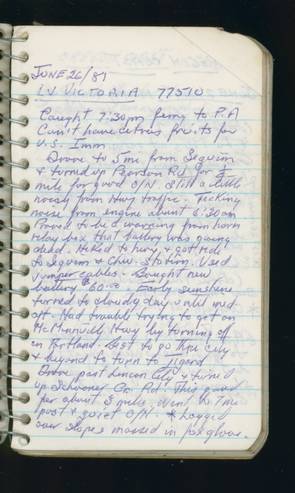 JUNE 26/87
LV. VICTORIA 77510
Caught 7:30pm ferry to P.A
Can't have citrus fruits for
U.S. Imm
Drove to 5 mi from Sequim
& turned up Pearson Rd for
mile for good O/N. Still a little
noisy from Hwy traffic. Ticking
noise from engine about 6:30am
Proved to be a warning from horn
relay box that battery was going
dead. Hiked to hwy & got ride
to Sequim & Chev. Station. Used
jumper cables. Bought new
battery $60.00. Early sunshine
turned to cloudy day until mid
aft. Had trouble trying to get on
McMinnville Hwy by turning off
in Portland. Best to go thru city
& beyond to turn to Tigard.
Drove past Lincoln City & turned
up Schooner Cr. Rd. This good
for about 3 miles. Went to 7mi
post & quiet O/N. * Logged
over slopes massed in foxglove.